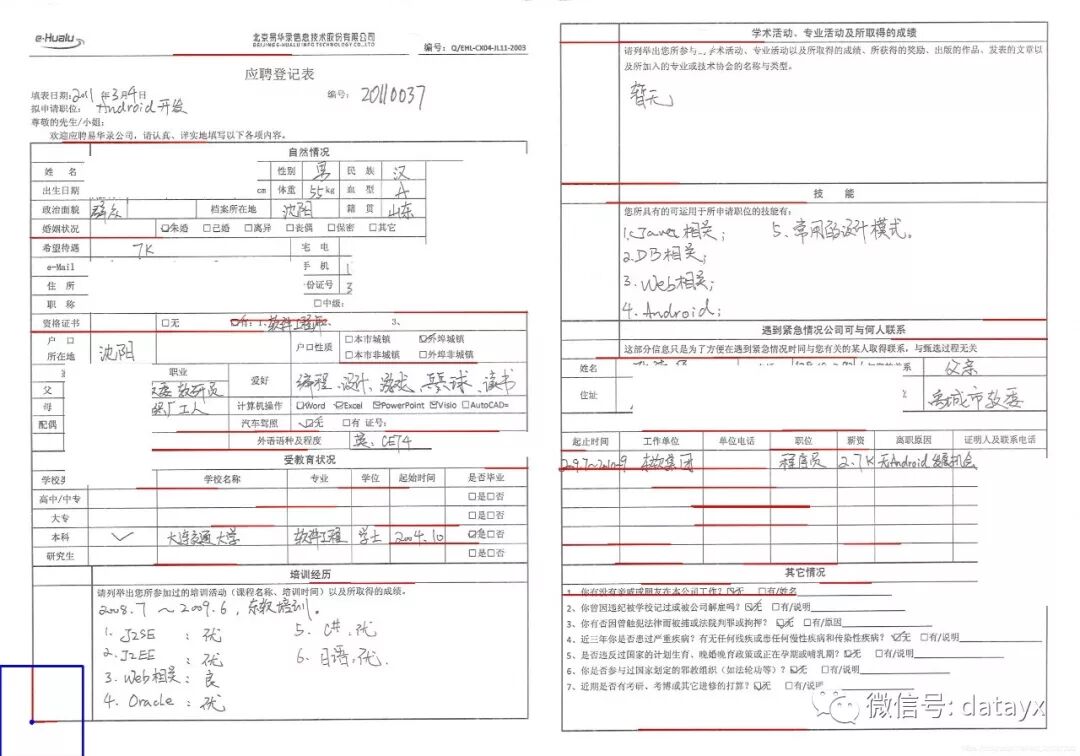 e-Hualu
北京易华录信息技术股份有限公司
BEIJING E-HUALU INFO TECHNOLOGY CO.,LTD
编号: Q/EHL-CX04-JL11-2003
应聘登记表
填表日期: 2011 年 3 月 4 日
编号: 20110037
拟申请职位: Android 开发
尊敬的先生/小姐:
欢迎应聘易华录公司，请认真、详实地填写以下各项内容。
自然情况
姓 名 性别 男 民 族 汉
出生日期 cm 体重 55 kg 血 型 A
政治面貌 群众 档案所在地 沈阳 籍 贯 山东
婚姻状况 ☑未婚 □已婚 □离异 □丧偶 □保密 □其它
希望待遇 7K 宅 电
e-Mail 手 机 1
住 所 份证号 3
职 称 □中级:
资格证书 □无 ☑有: 1、软件工程师 2、 3、
户 口 所在地 沈阳 户口性质 □本市城镇 ☑外埠城镇
□本市非城镇 □外埠非城镇
职业 爱好 编程、设计、游戏、乒乓球、读书
父 教研员
母 工人 计算机操作 □Word ☑Excel ☑PowerPoint ☑Visio □AutoCAD
配偶 汽车驾照 ☑无 □有 证号:
外语语种及程度 英、CET4
受教育状况
学校 学校名称 专业 学位 起始时间 是否毕业
高中/中专 □是□否
大专 □是□否
本科 ✓ 大连交通大学 软件工程 学士 2004.10 ☑是□否
研究生 □是□否
培训经历
请列举出您所参加过的培训活动（课程名称、培训时间）以及所取得的成绩。
2008.7 ~ 2009.6，东软培训。
1. J2SE : 优 5. C#, 优
2. J2EE : 优 6. 日语, 优.
3. Web相关: 良
4. Oracle : 优
学术活动、专业活动及所取得的成绩
请列举出您所参与 学术活动、专业活动以及所取得的成绩、所获得的奖励、出版的作品、发表的文章以
及所加入的专业或技术协会的名称与类型。
暂无
技 能
您所具有的可运用于所申请职位的技能有:
1. Java 相关; 5. 常用的设计模式。
2. DB相关;
3. Web相关;
4. Android;
遇到紧急情况公司可与何人联系
这部分信息只是为了方便在遇到紧急情况时间与您有关的某人取得联系，与甄选过程无关
姓名 关系 父亲
住址 禹城市教委
起止时间 工作单位 单位电话 职位 薪资 离职原因 证明人及联系电话
集团 程序员 2.7K 无Android发展机会
其它情况
1、你有没有亲戚或朋友在本公司工作? ☑无 □有/姓名
2、你曾因违纪被学校记过或被公司解雇吗? ☑无 □有/说明
3、你有否因曾触犯法律而被捕或法院判罪或拘押? ☑无 □有/原因
4、近三年你是否患过严重疾病? 有无任何残疾或患任何慢性疾病和传染性疾病? ☑无 □有/说明
5、是否违反过国家的计划生育、晚婚晚育政策或正在孕期或哺乳期? ☑无 □有/说明
6、你是否参与过国家划定的邪教组织（如法轮功等）? ☑无 □有/说明
7、近期是否有考研、考博或其它进修的打算? ☑无 □有/说明
微信号: datayx